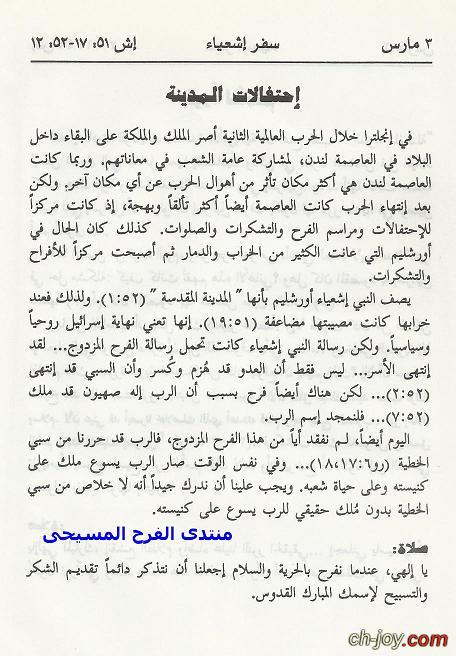 ٣ مارس سفر إشعياء إش ٥١: ١٧-٥٢: ١٢
إحتفالات المدينة
في إنجلترا خلال الحرب العالمية الثانية أصر الملك والملكة على البقاء داخل
البلاد في العاصمة لندن، لمشاركة عامة الشعب في معاناتهم. وربما كانت
العاصمة لندن هي أكثر مكان تأثر من أهوال الحرب عن أي مكان آخر. ولكن
بعد إنتهاء الحرب كانت العاصمة أيضاً أكثر تألقاً وبهجة، إذ كانت مركزاً
للإحتفالات ومراسم الفرح والتشكرات والصلوات. كذلك كان الحال في
أورشليم التي عانت الكثير من الخراب والدمار ثم أصبحت مركزاً للأفراح
والتشكرات.
يصف النبي إشعياء أورشليم بأنها "المدينة المقدسة" (١:٥٢). ولذلك فعند
خرابها كانت مصيبتها مضاعفة (١٩:٥١). إنها تعني نهاية إسرائيل روحياً
وسياسياً. ولكن رسالة النبي إشعياء كانت تحمل رسالة الفرح المزدوج... لقد
إنتهى الأسر... ليس فقط أن العدو قد هُزم وكُسر وأن السبي قد إنتهى
(٢:٥٢)... لكن هناك أيضاً فرح بسبب أن الرب إله صهيون قد ملك
(٧:٥٢)... فلنمجد إسم الرب.
اليوم أيضاً، لـم نفقد أياً من هذا الفرح المزدوج، فالرب قد حررنا من سبي
الخطية (رو٦:١٧،١٨)... وفي نفس الوقت صار الرب يسوع ملك على
كنيسته وعلى حياة شعبه. ويجب علينا أن ندرك جيداً أنه لا خلاص من سبي
الخطية بدون مُلك حقيقي للرب يسوع على كنيسته.
منتدى الفرح المسيحى
صلاة:
يا إلهي، عندما نفرح بالحرية والسلام إجعلنا أن نتذكر دائماً تقديم الشكر
والتسبيح لإسمك المبارك القدوس.
ch-joy.com